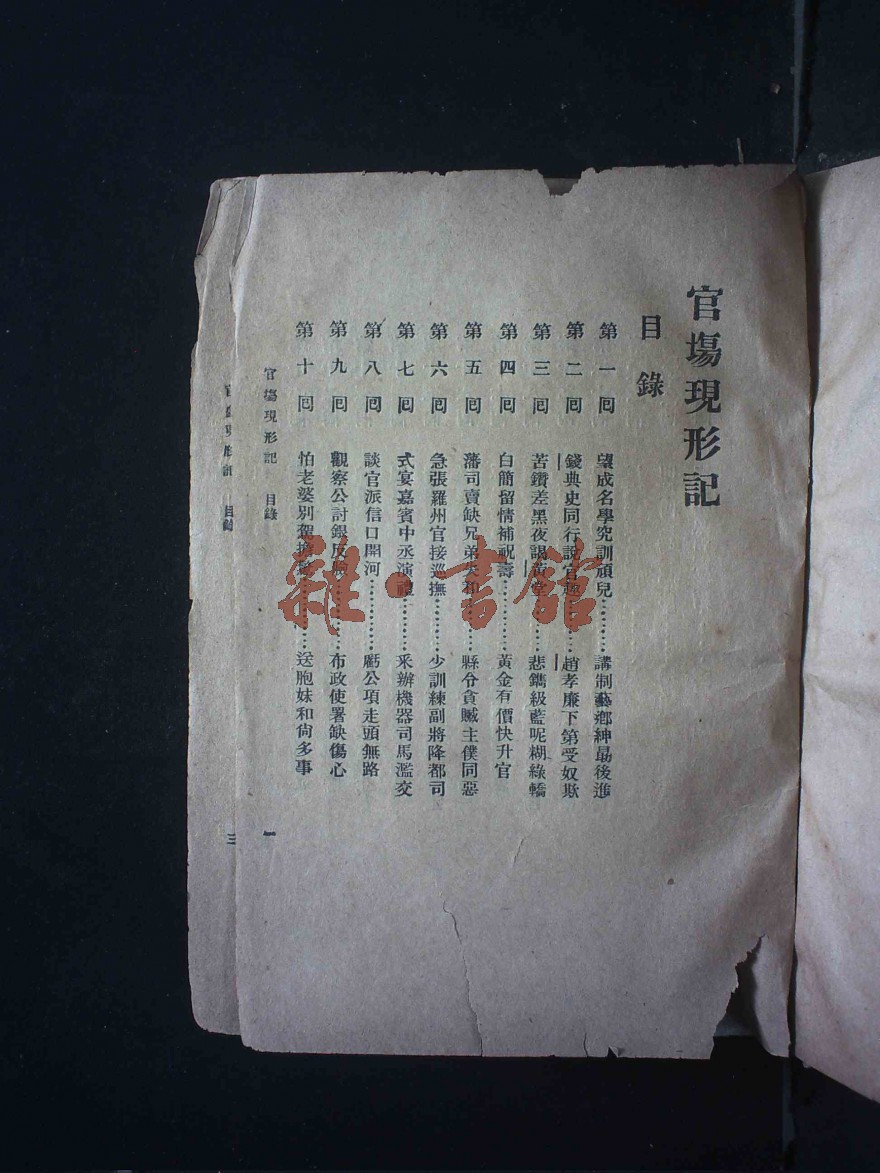 官塲現形記
目錄
第一回 望成名學究訓頑兒………講制藝鄉紳最後進
第二回 錢典史同行說官趣………趙孝廉下第受奴欺
第三回 苦鑽差黑夜謁黃堂………悲鐫級藍呢糊綠轎
第四回 白簡留情補祝壽…………黃金有價快升官
第五回 藩司賣缺兄弟失和………縣令貪贓主僕同惡
第六回 急張羅州官接巡撫………少訓練副將降都司
第七回 式宴嘉賓中丞演禮………采辦機器司馬濫交
第八回 談官派信口開河…………虧公項走頭無路
第九回 觀察公討銀反…………布政使署缺傷心
第十回 怕老婆別駕擔…………送胞妹和尙多事
官塲現形記 目錄
一
官塲現形記 目錄
三
雜·書館